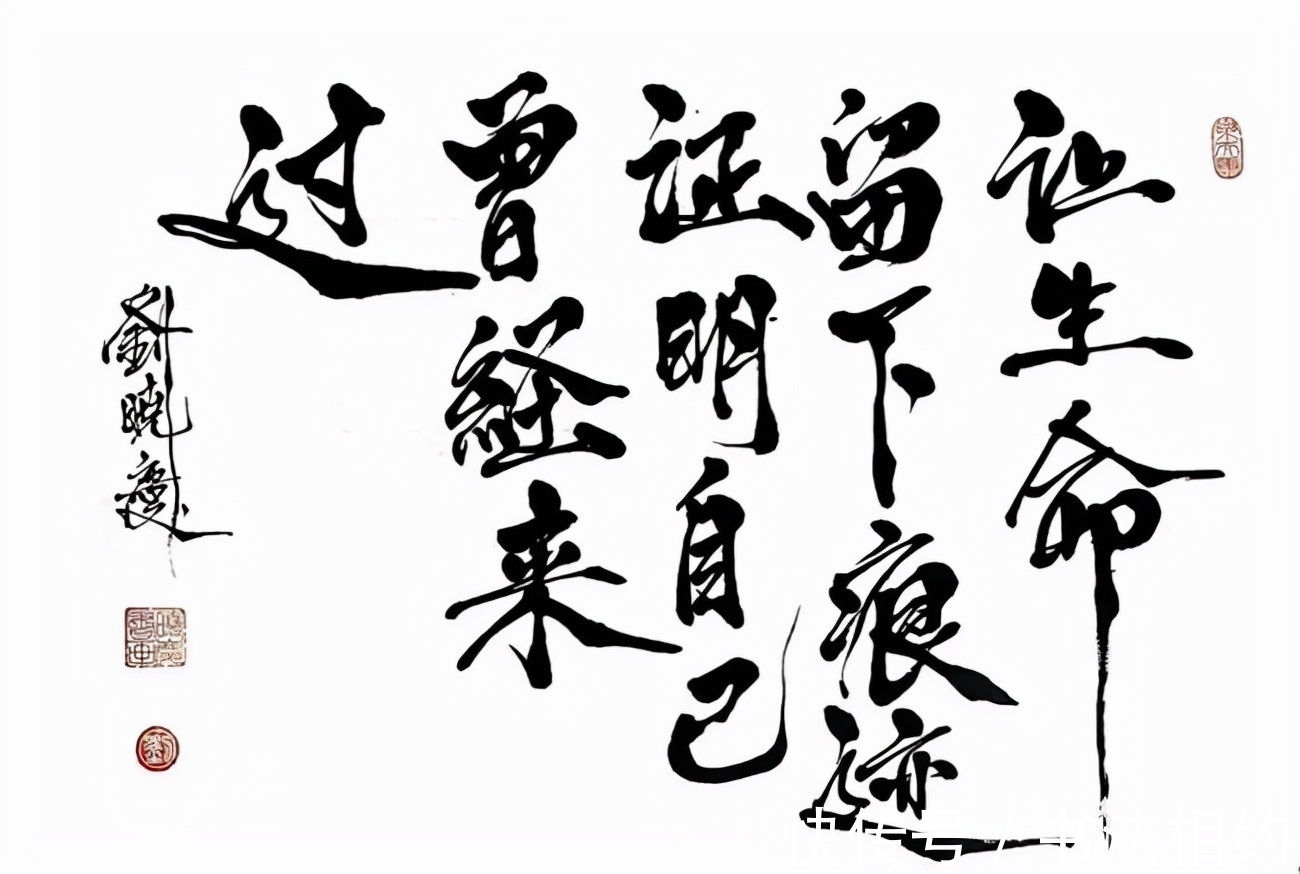 让生命
留下痕迹
证明自己
曾经来
过
劉晓慶
快传号 / 书法相约